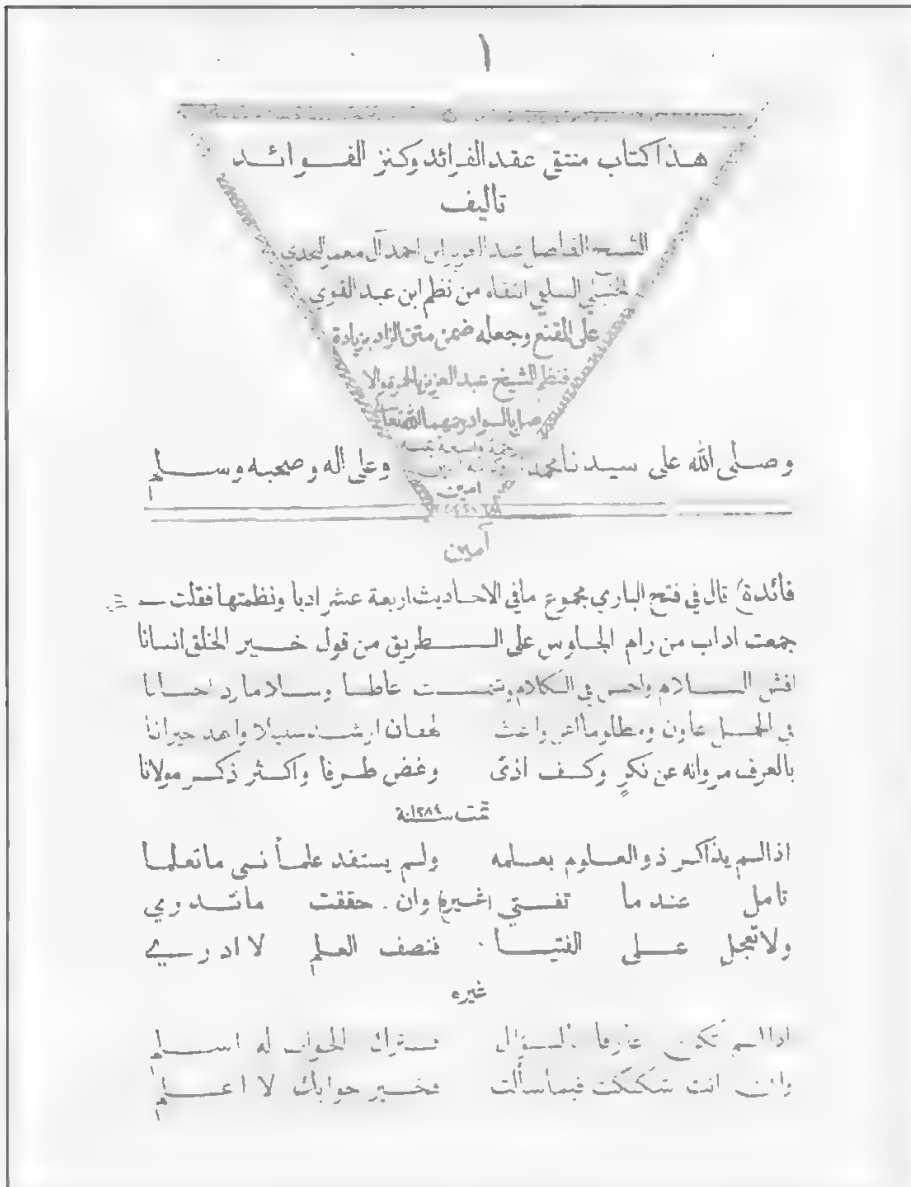 ١
هذا كتاب منتقى عقد الفرائد وكنز الفوائد
تاليف
الشيخ الفاضل عبد العزيز ابن احمد آل معمر النجدي
الحنبلي السلفي انتقاه من نظم ابن عبد القوي
على المقنع وجعله ضمن متن الزاد بزيادة
فنظم الشيخ عبد العزيز بالحمرة والا
صل بالسواد رحمهما الله تعالى
رحمة واسعة
امين
وصلى الله على سيدنا محمد وعلى اله وصحبه وسلم
آمين
فائدة) قال في فتح الباري مجموع ما في الاحاديث اربعة عشر ادبا ونظمتها فقلت
جمعت اداب من رام الجلوس على الطريق من قول خير الخلق انسانا
افش السلام واحسن في الكلام وشمت عاطسا وسلاما رد احسانا
في الحمل عاون ومظلوما اعن واغث لهفان ارشد سبيلا واهد حيرانا
بالعرف مر وانه عن نكرٍ وكف اذى وغض طرفا واكثر ذكر مولانا
تمت سنة ١٢٨٤
اذا لم يذاكر ذو العلوم بعلمه ولم يستفد علماً نسي ما تعلما
تامل عندما تفتي (غيره) وان حققت ما تدري
ولا تعجل على الفتيا فنصف العلم لا ادري
غيره
اذا لم تكن عارفا بالسؤال فترك الجواب له اسلم
وان انت شككت فيما سألت فخير جوابك لا اعلم